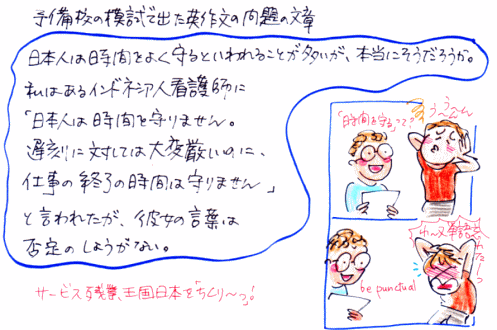 予備校の模試で出た英作文の問題の文章
日本人は時間をよく守るといわれることが多いが、本当にそうだろうか。
私はあるインドネシア人看護師に
「日本人は時間を守りません。
遅刻に対しては大変厳しいのに、
仕事の終了の時間は守りません」
と言われたが、彼女の言葉は
否定のしようがない。
サービス残業王国日本をちくり〜っ!
「時間を守る」って??
う〜うーんん
be punctual